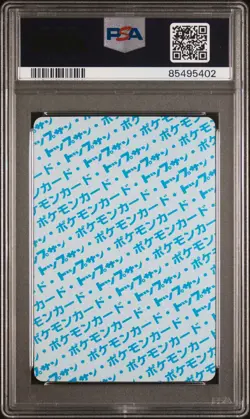 PSA
85495402
トップサン・ポケモンカード・
ポケモンカード・トップサン・
トップサン・ポケモンカード・
ポケモンカード・トップサン・
トップサン・ポケモンカード・
ポケモンカード・トップサン・
トップサン・ポケモンカード・
ポケモンカード・トップサン・
トップサン・ポケモンカード・
ポケモンカード・